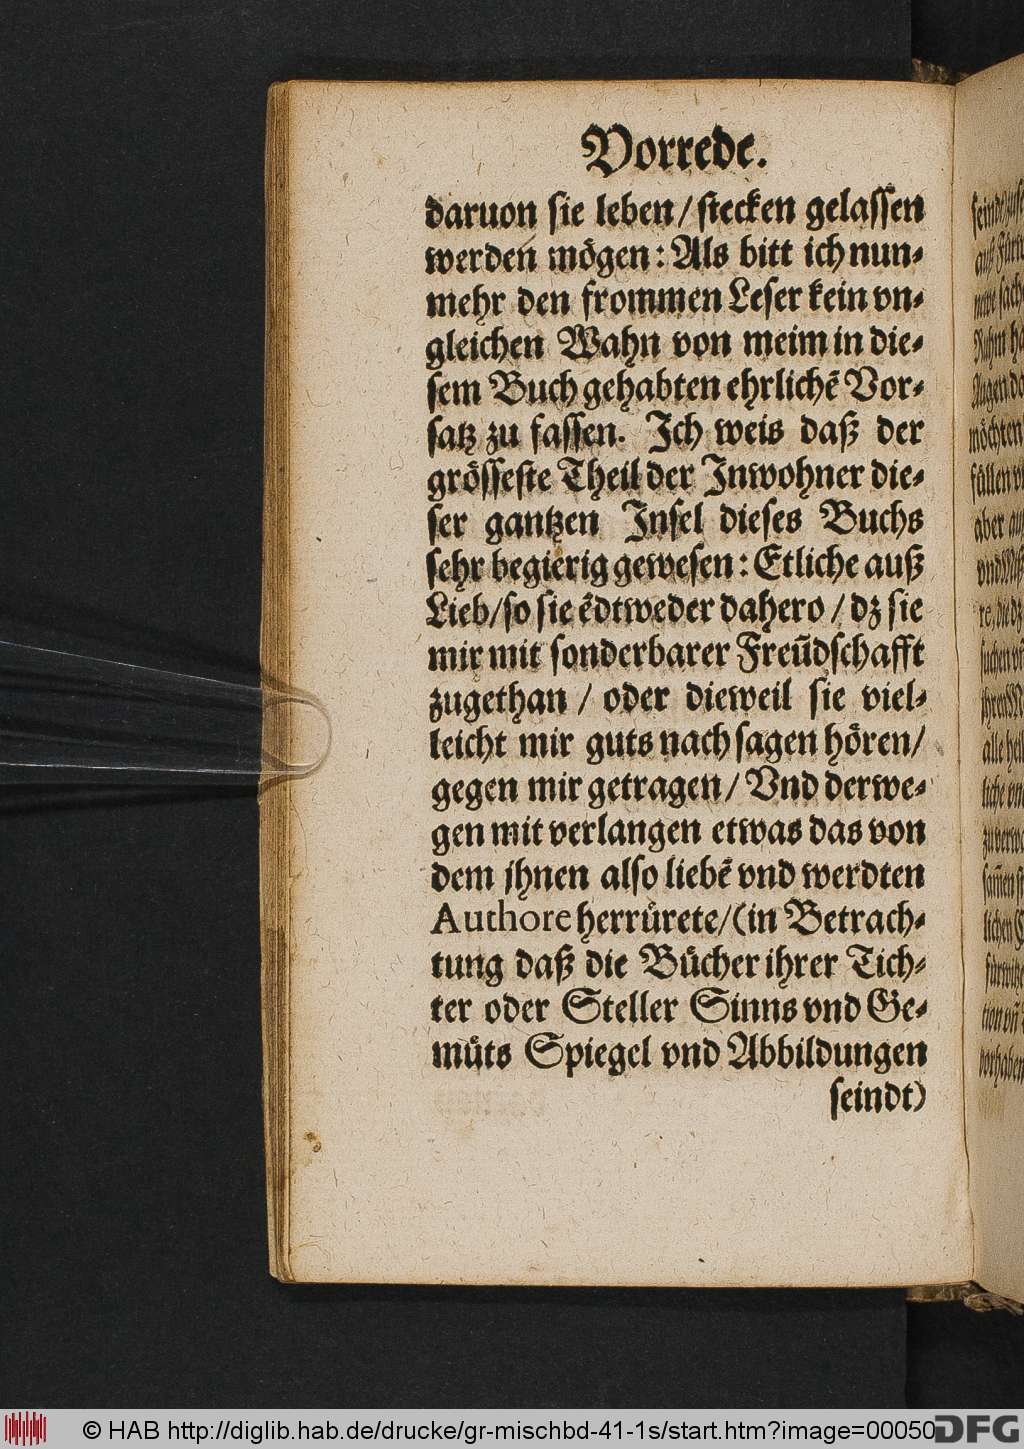 Vorrede.
daruon sie leben/ stecken gelassen
werden mögen: Als bitt ich nun-
mehr den frommen Leser kein vn-
gleichen Wahn von meim in die-
sem Buch gehabten ehrlichẽ Vor-
satz zu fassen. Ich weis daß der
grösseste Theil der Inwohner die-
ser gantzen Insel dieses Buchs
sehr begierig gewesen: Etliche auß
Lieb/ so sie ẽdtweder dahero/ dz sie
mir mit sonderbarer Freũdschafft
zugethan/ oder dieweil sie viel-
leicht mir guts nach sagen hören/
gegen mir getragen/ Vnd derwe-
gen mit verlangen etwas das von
dem jhnen also liebẽ vnd werdten
Authore herrürete/ (in Betrach-
tung daß die Bücher ihrer Tich-
ter oder Steller Sinns vnd Ge-
müts Spiegel vnd Abbildungen
seindt)
© HAB http://diglib.hab.de/drucke/gr-mischbd-41-1s/start.htm?image=00050
DFG